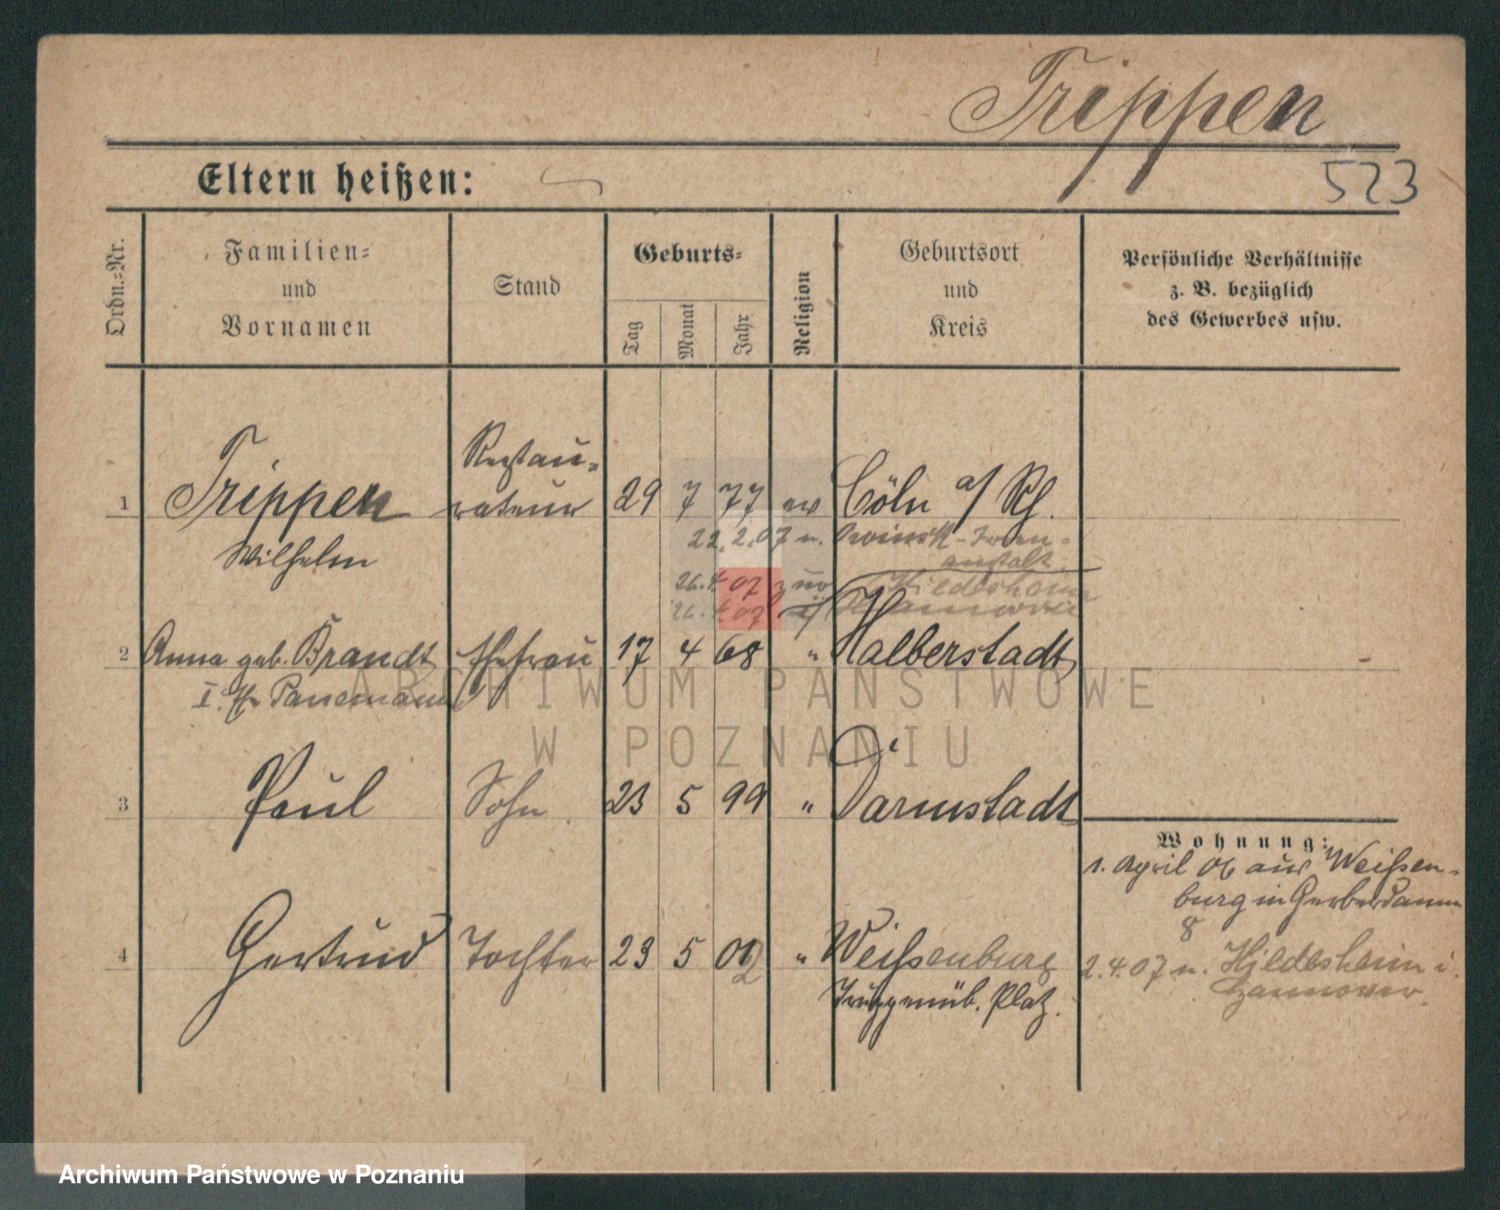 Trippen
523
Eltern heißen:
Ordn.=Nr.
Familien=
und
Vornamen
Stand
Geburts=
Tag
Monat
Jahr
Religion
Geburtsort
und
Kreis
Persönliche Verhältnisse
z. B. bezüglich
des Gewerbes usw.
Restau=
1 Trippen rateur 29 7 77 ev Cöln a/ Rh.
Wilhelm
22. 2. 07 n. Irren=
anstalt
26. 4. 07 Hildesheim
26. 4. 07
2 Anna geb. Brandt Ehefrau 17 4 68 " Halberstadt
I. Panemann
3 Paul Sohn 23 5 99 " Darmstadt
Wohnung:
1. April 06 aus Weißen=
burg in Gerberdamm
8
4 Gertrud Tochter 23 5 02 " Weißenburg
2. 4. 07 n. Hildesheim i.
Hannover.
Truppenüb. Platz.
ARCHIWUM PAŃSTWOWE
W POZNANIU
Archiwum Państwowe w Poznaniu